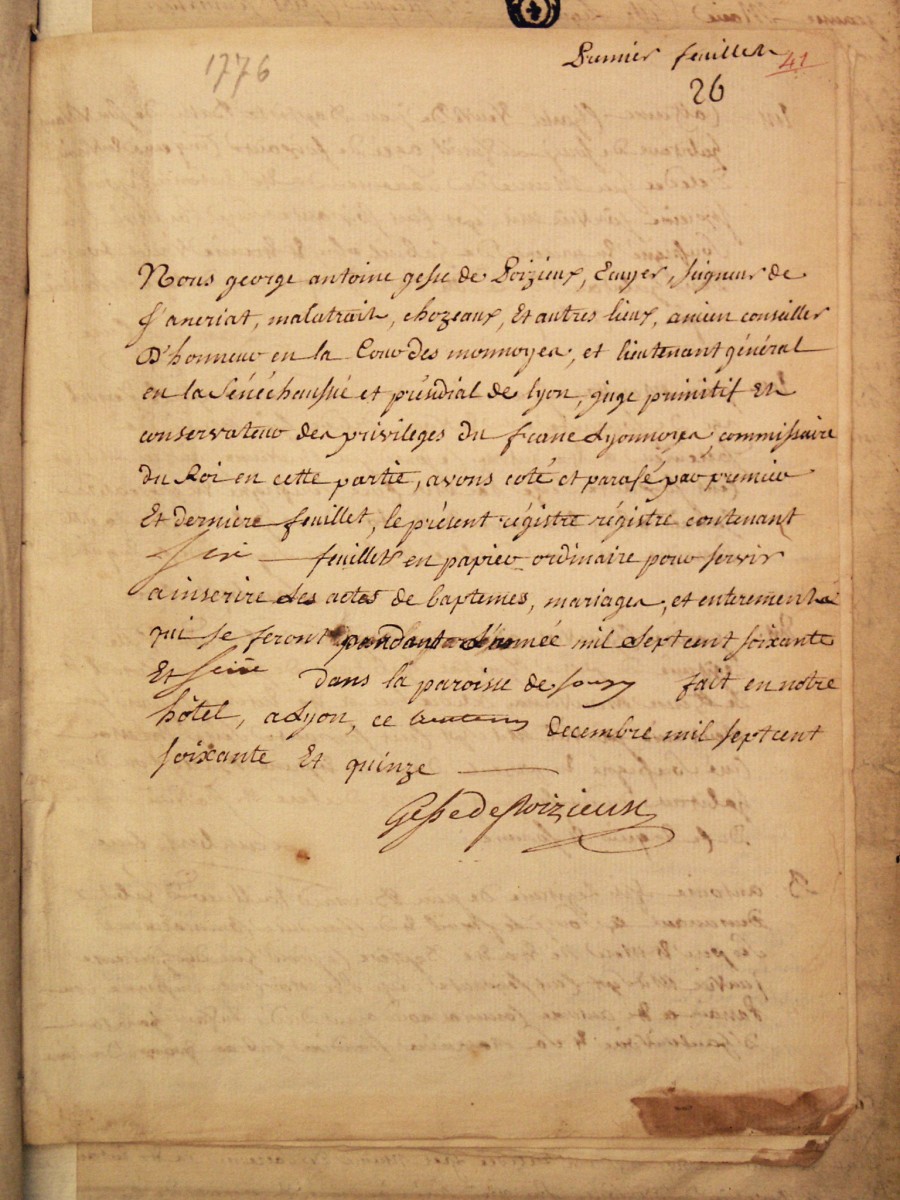 1776
Premier feuillet
41
26
Nous george antoine gesse de Poizieux, Ecuyer, seigneur de
St aneriat, malatrait, chozeaux, Et autres lieux, ancien conseiller
D'honneur en la Cour des monnoyes, et lieutenant général
en la Sénéchaussée et présidial de lyon, juge primitif Et
conservateur des privileges du franc Lyonnoyes, commissaire
du Roi en cette partie, avons coté et parafé par premier
Et dernière feuillet, le présent régistre régistre contenant
seize feuillets en papier ordinaire pour servir
a inscrire des actes de baptemes, mariages, et enterements
qui se feront pandant l'année mil Septcent soixante
Et seize dans la paroisse de fait en notre
hôtel, a Lyon, ce decembre mil septcent
soixante Et quinze
Gesse de Poizieux